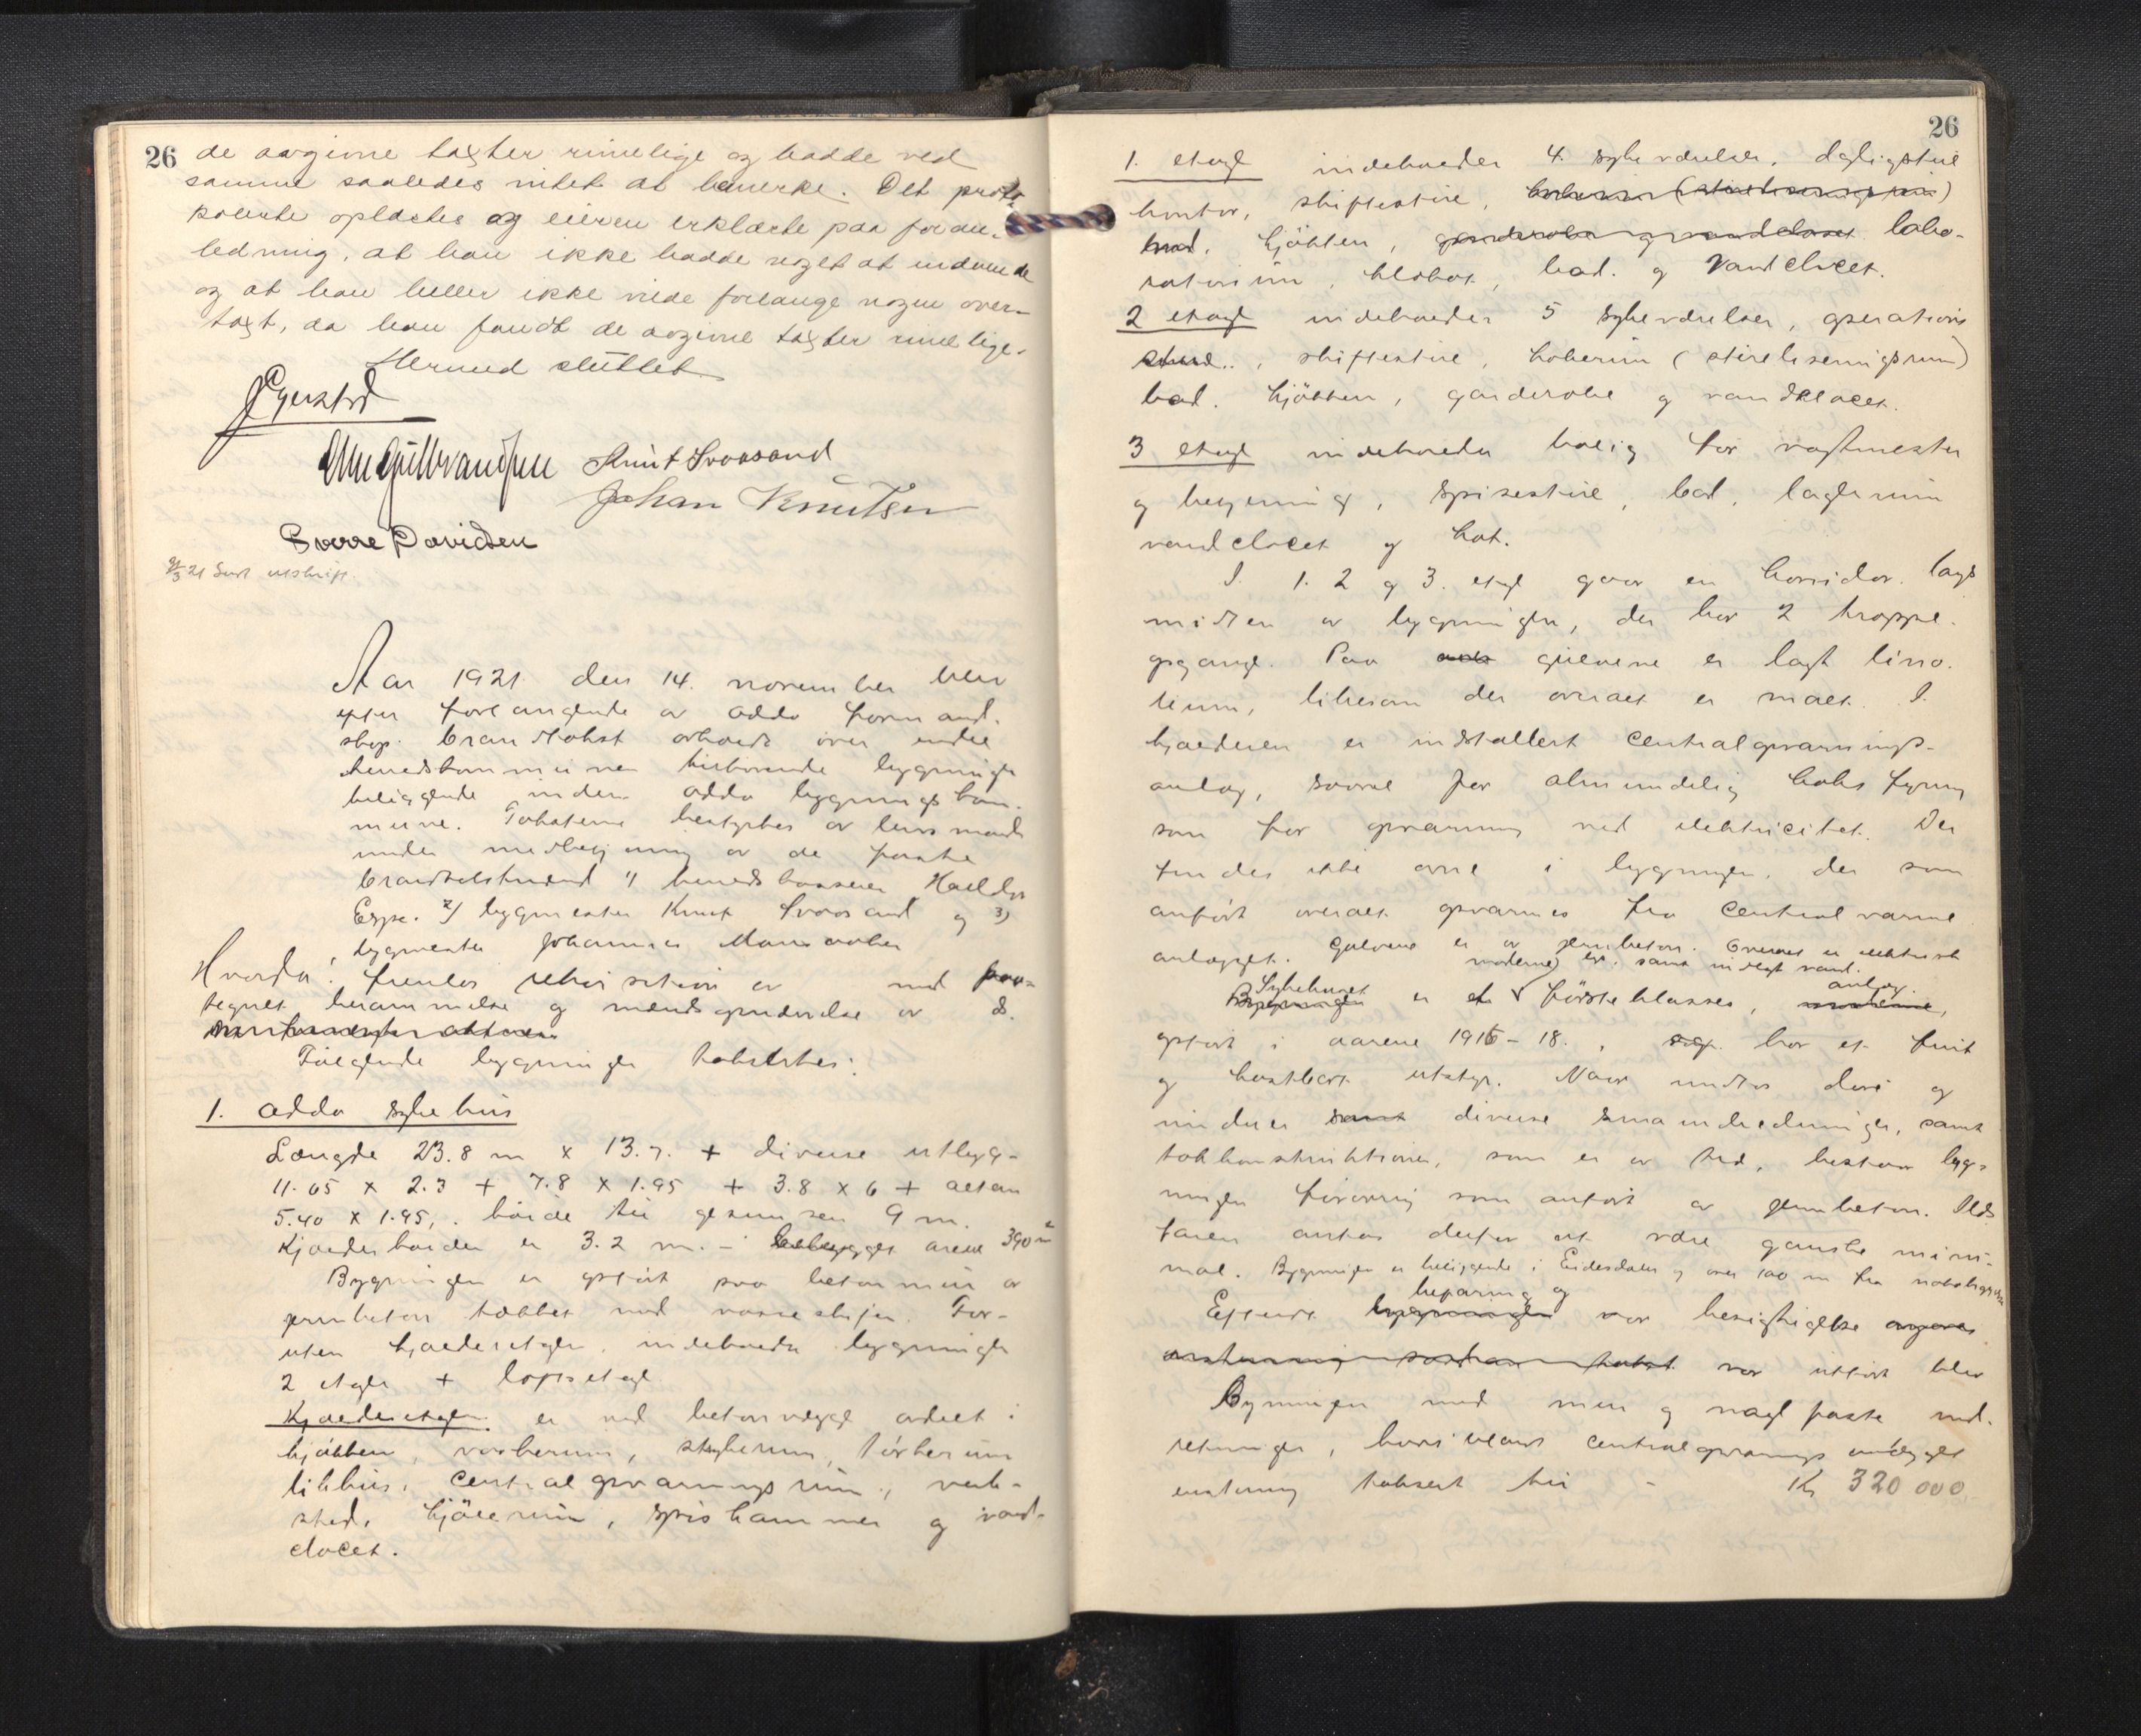 26
de avgivne takster rimelige og hadde ved
samme saaledes intet at bemerke. Det proto-
kollerte oplæstes og eieren erklærte paa foran-
ledning, at han ikke hadde noget at indvende
og at han heller ikke vilde forlange nogen over-
takst, da han fandt de avgivne takster rimelige.
Herved sluttet
Knut Svaasand
Johan Knutsen
Sverre Davidsen
21 utskrift.
Aar 1921 den 14. november blev
efter forlangende av Odda formand-
skap brandtakst avholdt over endel
herredskommunen tilhørende bygninger
beliggende inden Odda bygningskom-
mune. Taksterne bestyrtes av lensmand
under medbetjening av de faste
brandtakstmænd 1) herredskasserer
Espe. 2) bygmester Knut Svaasand og 3)
bygmester Johannes
Hvorda! fremlas rekvisition av med paa-
tegnet berammelse og mændsopnævnelse av d.
Følgende bygninger taksertes:
1. Odda sykehus
Længde 23.8 m x 13.7. + diverse utbygg-
11.05 x 2.3 + 7.8 x 1.95 + 3.8 x 6 + altan
5.40 x 1.95, høide til gesimsen 9 m.
Kjælderhøiden er 3.2 m. - bebygget areal 390 m²
Bygningen er opført paa betonmur av
jernbeton tækket med skifer. For-
uten kjælderetagen indeholder bygningen
2 etager + loftsetage
Kjælderetagen er ved betonvægge avdelt i
kjøkken, vaskerum, rum, tørkerum
likhus, centralopvarmningsrum, verk-
sted, kjølerum, spiskammer og vand-
closet.
26
1. etage indeholder 4 sykeværelser, dagligstue
kontor, skiftestue,
bad, kjøkken, garderobe og vandcloset labo-
ratorium, bad. og Vandcloset.
2 etage indeholder 5 sykeværelser, operations
stue, skiftestue, (steriliseringsrum)
bad. kjøkken, garderobe og vandkloset.
3 etage indeholder bolig for vagtmester
og betjening, spisestue, bad, lagerrum
vandcloset og kot.
I 1. 2 og 3. etage gaar en korridor langs
midten av bygningen, der har 2 trappe-
opgange. Paa gulvene er lagt lino-
leum, likesom der overalt er malt. I
kjælderen er indstallert centralopvarmnings-
anlæg, saavel for almindelig koks fyring
som for opvarming ved elektricitet. Der
findes ikke ovne i bygningen, der som
anført overalt opvarmes fra centralvarme
anlægget. Gulvene er av jernbeton. Overalt er elektrisk
lys. samt indlagt vand.
Sykehuset er et moderne første klasses anlæg,
opført i aarene 1916 - 18. har et fint
og kostbart utstyr. Naar undtas døre og
vinduer samt diverse smaindredninger, samt
takkonstruktionen, som er av træ, bestaar byg-
ningen forøvrig som anført av jernbeton. Ilds-
faren antas derfor at være ganske mini-
mal. Bygningen er beliggende i Eidesdalen og over 100 m fra nabobygning
Efterat befaring og besigtigelse
var utført blev
Bygningen med mur og nagelfaste ind-
retninger, hvori iblandt centralopvarmings anlægget
enstemmig taksert til - Kr 320 000